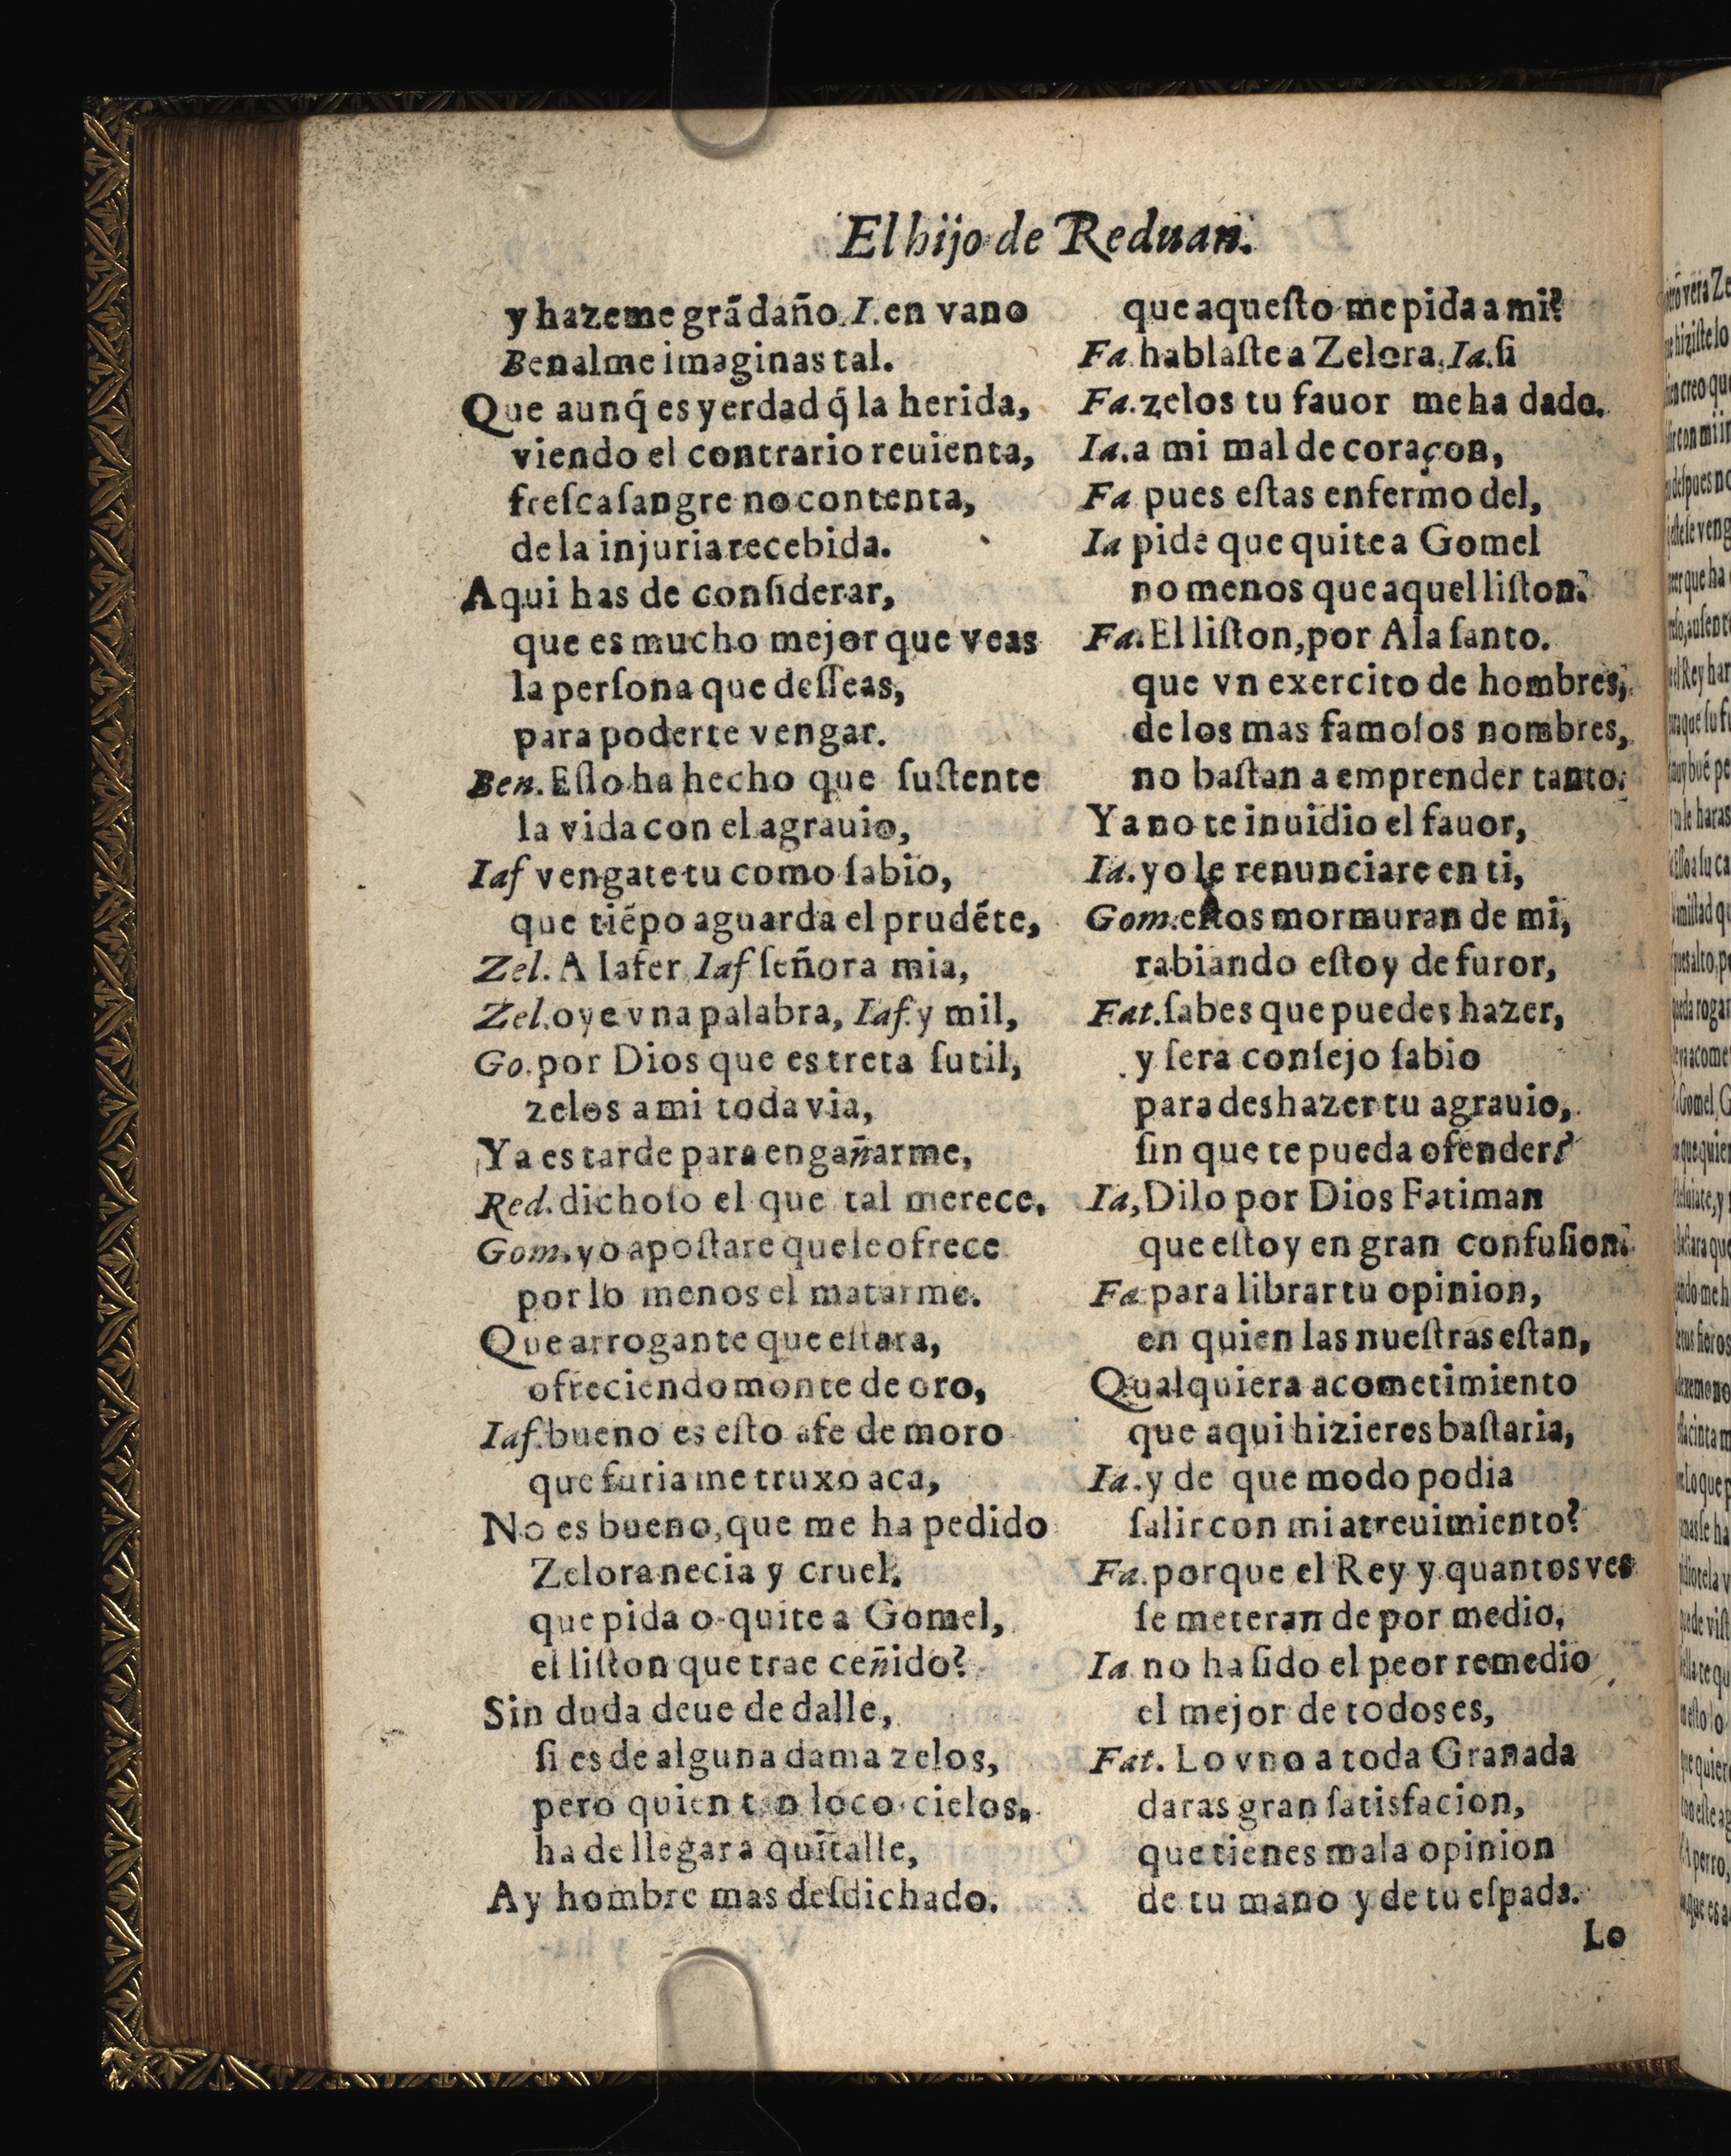 El hijo de Reduan.
y hazeme grã daño. I. en vano
Benalme imaginas tal.
Que aunq̃ es yerdad q̃ la herida,
viendo el contrario reuienta,
freſca ſangre no contenta,
de la injuria recebida.
Aqui has de conſiderar,
que es mucho mejor que veas
la perſona que deſſeas,
para poderte vengar.
Ben. Eſto ha hecho que ſuſtente
la vida con el agrauio,
Iaf vengate tu como ſabio,
que tiẽpo aguarda el prudẽte,
Zel. A Iafer Iaf ſeñora mia,
Zel. oye vna palabra, Iaf. y mil,
Go. por Dios que es treta ſutil,
zelos a mi toda via,
Ya es tarde para engañarme,
Red. dichoſo el que tal merece.
Gom. yo apoſtare que le ofrece
por lo menos el matarme.
Que arrogante que eſtara,
ofreciendo monte de oro,
Iaf. bueno es eſto afe de moro
que furia me truxo aca,
No es bueno, que me ha pedido
Zelora necia y cruel,
que pida o quite a Gomel,
el liſton que trae ceñido?
Sin duda deue de dalle,
ſi es de alguna dama zelos,
pero quien tan loco cielos,
ha de llegar a quitalle,
Ay hombre mas deſdichado.
que aqueſto me pida a mi?
Fa. hablaſte a Zelora, Ia. ſi
Fa. zelos tu fauor me ha dado.
Ia. a mi mal de coraçon,
Fa pues eſtas enfermo del,
Ia pide que quite a Gomel
no menos que aquel liſton?
Fa. El liſton, por Ala ſanto.
que vn exercito de hombres,
de los mas famoſos nombres,
no baſtan a emprender tanto.
Ya no te inuidio el fauor,
Ia. yo le renunciare en ti,
Gom. eſtos mormuran de mi,
rabiando eſtoy de furor,
Fat. ſabes que puedes hazer,
y ſera conſejo ſabio
para deshazer tu agrauio,
ſin que te pueda ofender?
Ia, Dilo por Dios Fatiman
que eſtoy en gran confuſion.
Fa para librar tu opinion,
en quien las nueſtras eſtan,
Qualquiera acometimiento
que aqui hizieres baſtaria,
Ia. y de que modo podia
ſalir con mi atreuimiento?
Fa. porque el Rey y quantos ves
ſe meteran de por medio,
Ia no ha ſido el peor remedio
el mejor de todos es,
Fat. Lo vno a toda Granada
daras gran ſatisfacion,
que tienes mala opinion
de tu mano y de tu eſpada.
Lo